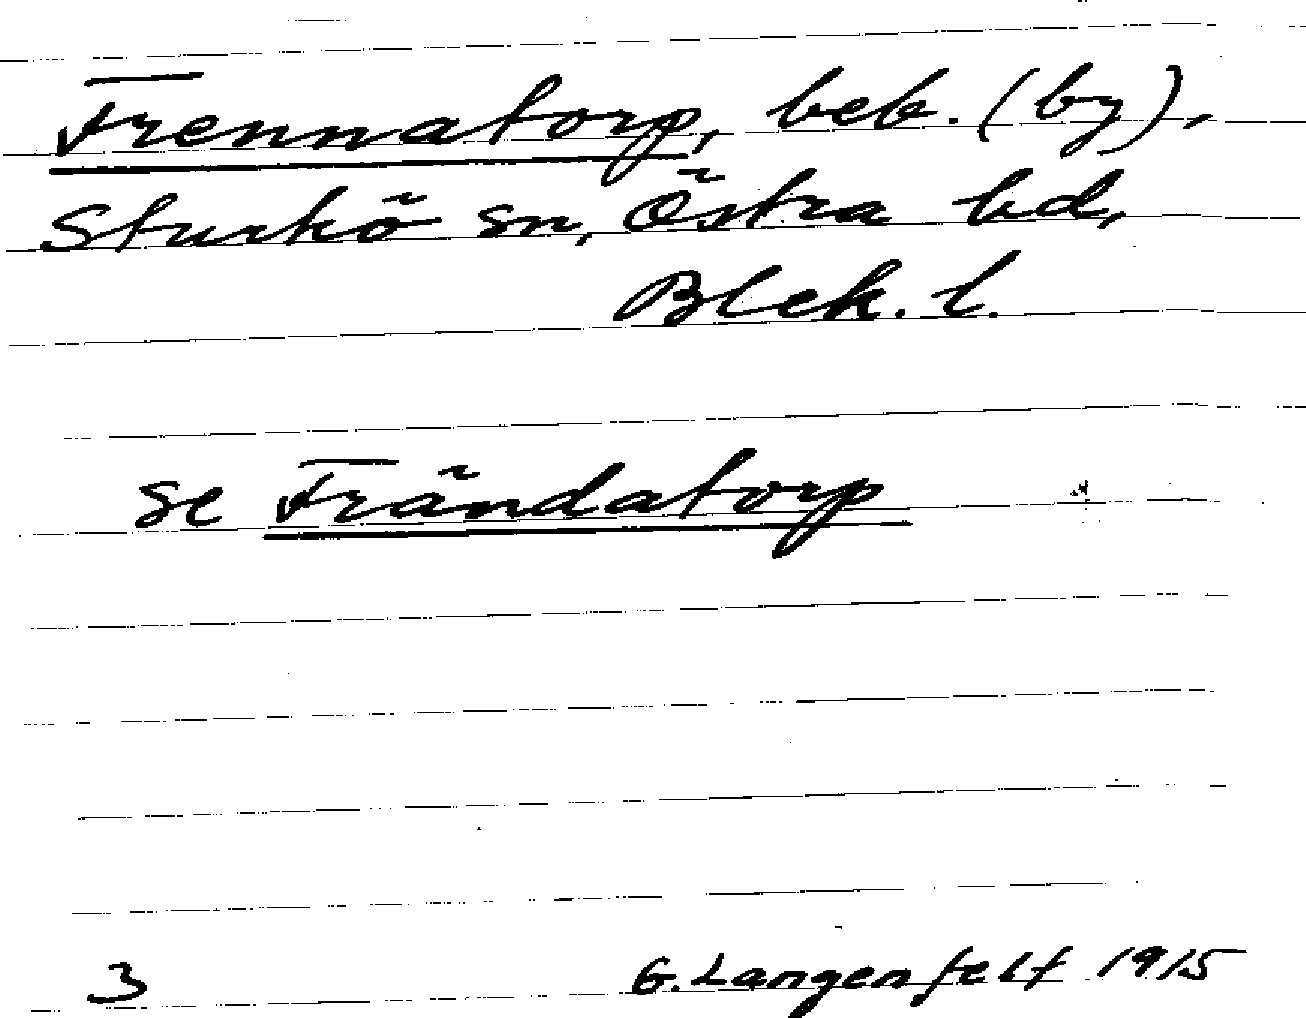 Frennatorp, beb. (by),
Sturkö sn, Östra hd,
Blek. l.
se Frändatorp
3 G. Langenfelt 1915